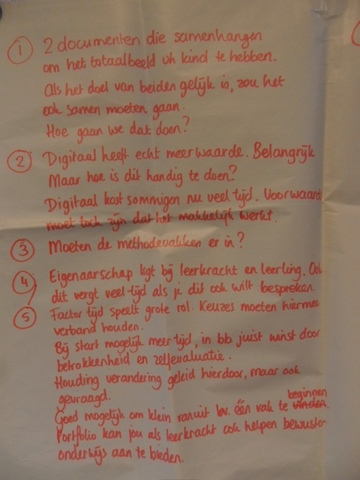 ① 2 documenten die samenhangen
om het totaalbeeld v/h kind te hebben.
Als het doel van beiden gelijk is, zou het
ook samen moeten gaan.
Hoe gaan we dat doen?
② Digitaal heeft echt meerwaarde. Belangrijk
Maar hoe is dit handig te doen?
Digitaal kost sommigen nu veel tijd. Voorwaard
moet toch zijn dat het makkelijk werkt.
③ Moeten de methodevakken er in?
④ Eigenaarschap ligt bij leerkracht en leerling. Ook
dit vergt veel tijd als je dit ook wilt bespreken.
⑤ Factor tijd speelt grote rol. Keuzes moeten hiermee
verband houden.
Bij start mogelijk meer tijd, in bb juist winst door
betrokkenheid en zelfevaluatie.
Houding verandering geleid hierdoor, maar ook
gevraagd.
Goed mogelijk om klein vanuit bv. één vak te beginnen
Portfolio kan jou als leerkracht ook helpen bewuster
onderwijs aan te bieden.